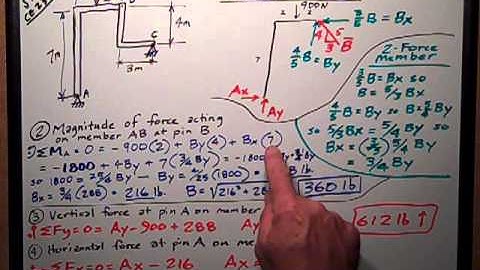 900N
2 2
4m
7m
3m
A
C
7
3/5 B = Bx
4/5 B = By
3
4
5
B
Ax
Ay
2-Force
member
3/5 B = Bx so
B = 5/3 Bx
4/5 B = By so B = 5/4 By
so 5/3 Bx = 5/4 By
Bx = (3/5)5/4 By
= 3/4 By
② Magnitude of force acting
on member AB at pin B
ΣMA = 0 = -900(2) + By(4) + Bx(7)
= -1800 + 4By + 7(3/4 By) = -1800
so 1800 =
Bx = 3/4 (288) = 216 lb B = √216² + 288 360 lb
③ Vertical force at pin A on member
↑ΣFy = 0 = Ay - 900 + 288 Ay 612 lb ↑
④ Horizontal force at pin A on mem
= 0 = Ax - 216 Ax